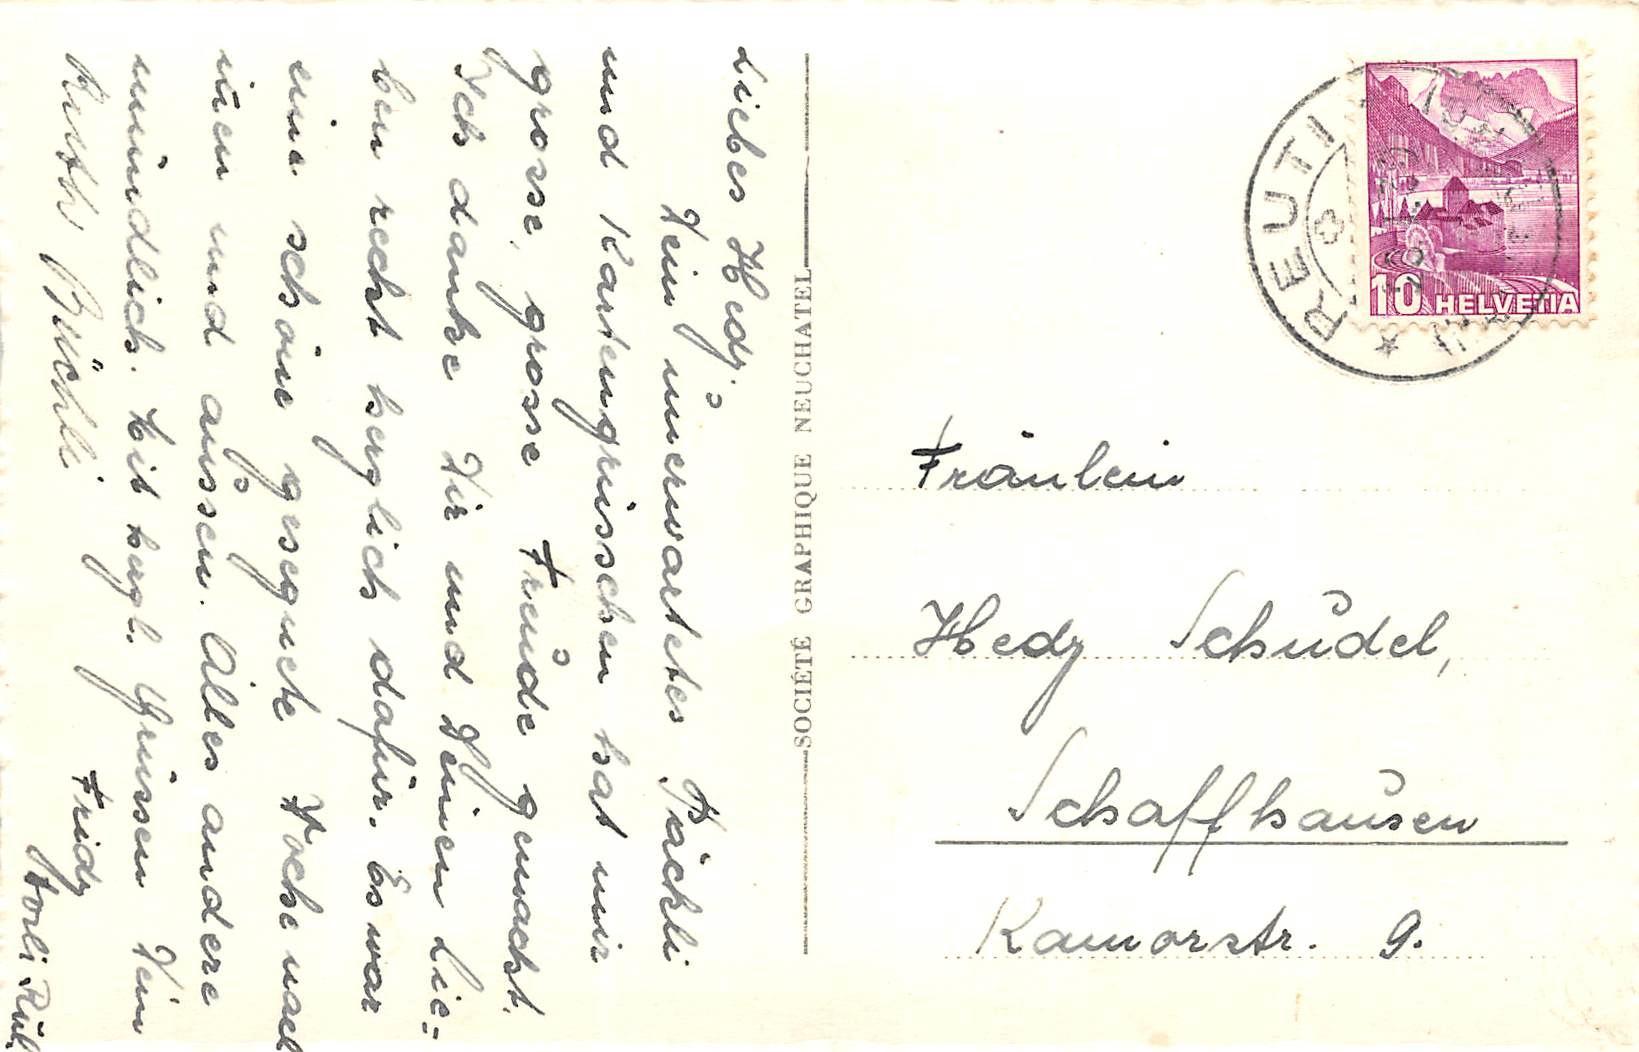 Liebes Hedy.
Dein unerwartetes Päckli
und Kartengrüsschen hat mir
grosse, grosse Freude gemacht.
Ich danke Dir und Deinen Lie-
ben recht herzlich dafür. Es war
eine schöne gesegnete Woche nach
innen und aussen. Alles andere
mündlich. Mit herzl. Grüssen Dein
Fridy
Ruth Büchli
SOCIÉTÉ GRAPHIQUE NEUCHATEL
REUTI
10 HELVETIA
Fräulein
Hedy Schudel,
Schaffhausen
Kamorstr. 9.